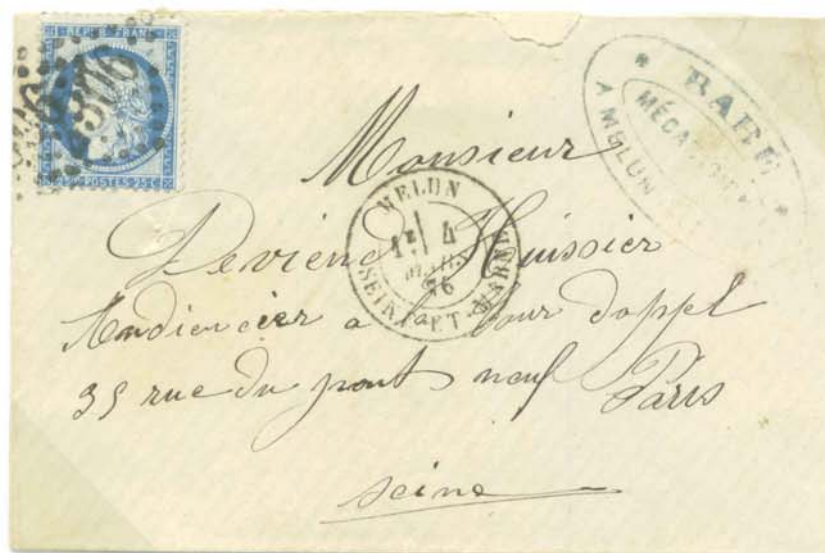 REPUB FRANC
POSTES 25 C
* BABE *
MÉCANICIEN
A MELUN
MELUN
1E 4
MARS
76
SEINE-ET-MARNE
Monsieur
Deviend Huissier
Audiencier a la Cour d'appel
35 rue du pont neuf Paris
Seine